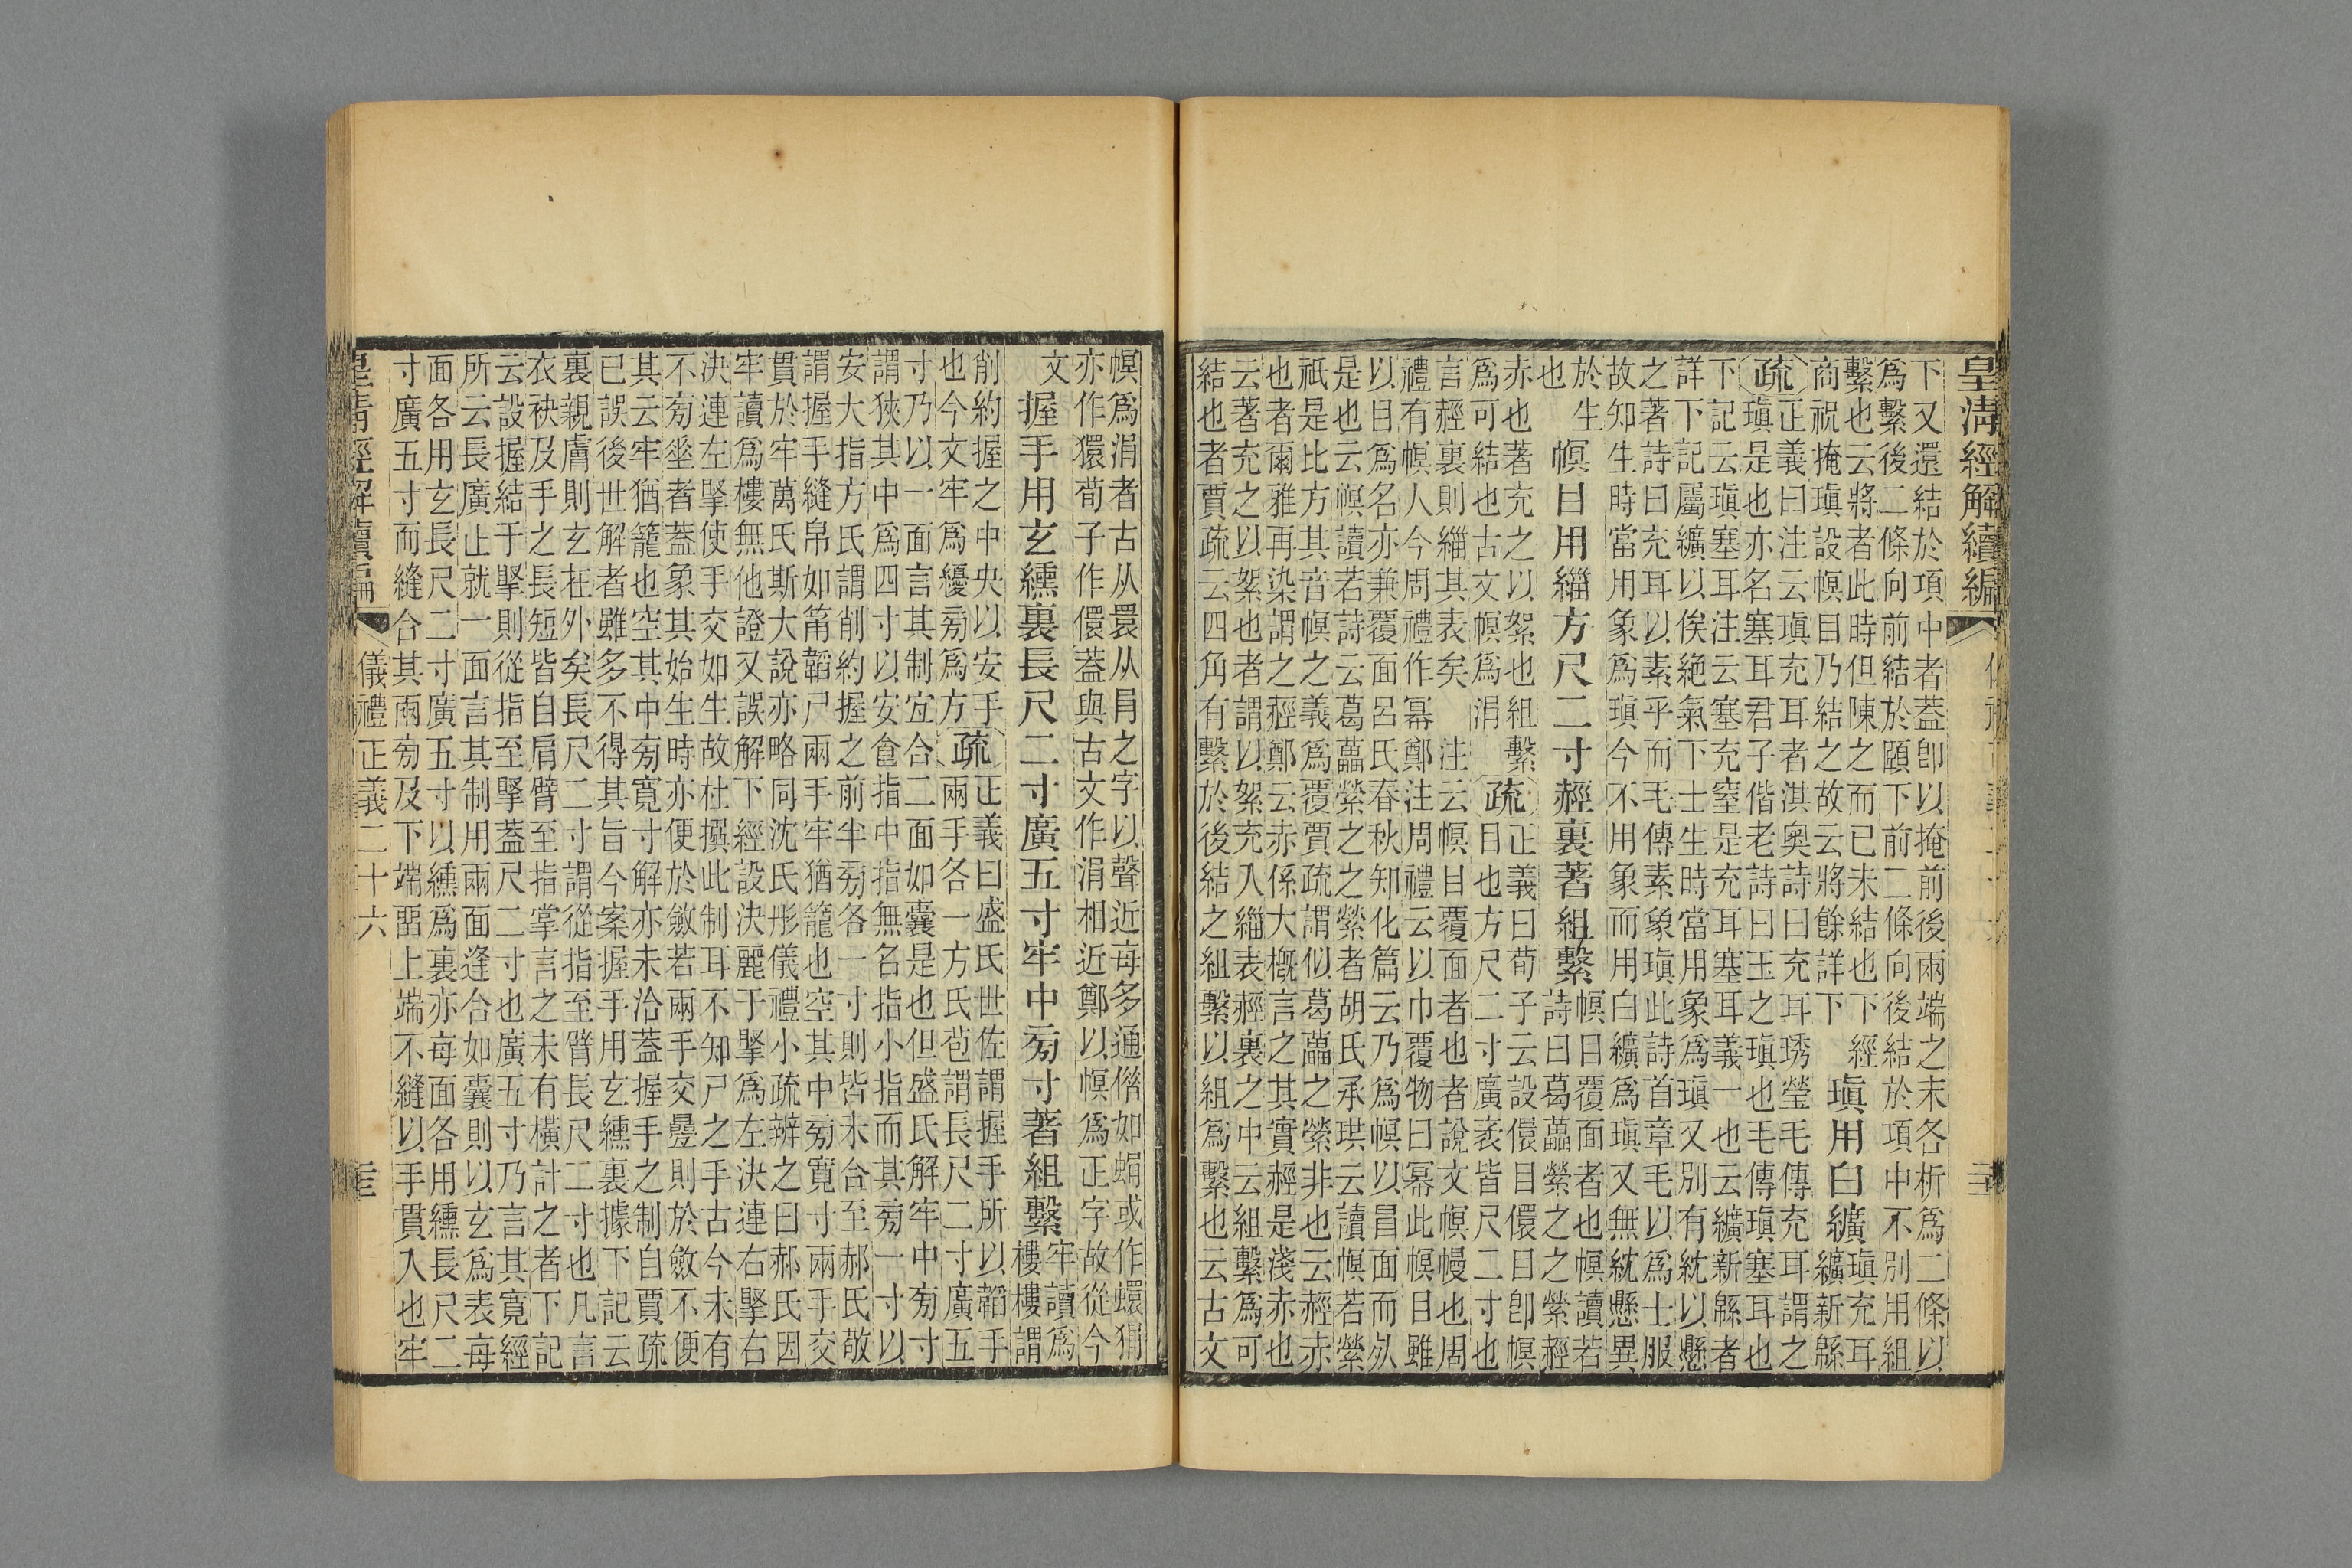 皇淸經解續編
下又還結於項中者葢卽以掩前後兩端之末各析爲二條以
爲繫後二條向前結於頤下前二條向後結於項中不別用組
繫也云將者此時但陳之而已未結也下經
商祝掩瑱設幎目乃結之故云將餘詳下
瑱用白纊
瑱充耳
纊新緜
疏
正義曰注云瑱充耳者淇奧詩曰充耳琇瑩毛傳充耳謂之
瑱是也亦名塞耳君子偕老詩曰玉之瑱也毛傳瑱塞耳也
下記云瑱塞耳注云塞充窒是充耳塞耳義一也云纊新緜者
詳下記屬纊以俟絕氣下士生時當用象爲瑱又別有紞以懸
之著詩曰充耳以素乎而毛傳素象瑱此詩首章毛以爲士服
故知生時當用象爲瑱今不用象而用白纊爲瑱又無紞懸異
於生
也
幎目用緇方尺二寸䞓裏著組繫
幎目覆面者也幎讀若
詩曰葛藟縈之之縈䞓
赤也著充之以絮也組繫
爲可結也古文幎爲涓
疏
正義曰荀子云設儇目儇目卽幎
目也方尺二寸廣袤皆尺二寸也
言䞓裏則緇其表矣　注云幎目覆面者也者說文幎幔也周
禮有幎人今周禮作冪鄭注周禮云以巾覆物曰冪此幎目雖
以目爲名亦兼覆面呂氏春秋知化篇云乃爲幎以冒面而㱙
是也云幎讀若詩云葛藟縈之之縈者胡氏承珙云讀幎若縈
祇是比方其音幎之義爲覆賈疏謂似葛藟之縈非也云䞓赤
也者爾雅再染謂之䞓鄭云赤係大槪言之其實䞓是淺赤也
云著充之以絮也者謂以絮充入緇表䞓裏之中云組繫爲可
結也者賈疏云四角有繫於後結之組繫以組爲繫也云古文
幎爲涓者古从睘从肙之字以聲近每多通偕如蜎或作蠉狷
亦作獧荀子作儇葢與古文作涓相近鄭以幎爲正字故從今
文
握手用玄纁裏長尺二寸廣五寸牢中旁寸著組繫
牢讀爲
樓樓謂
削約握之中央以安手
也今文牢爲纋旁爲方
疏
正義曰盛氏世佐謂握手所以韜手
兩手各一方氏苞謂長尺二寸廣五
寸乃以一面言其制宜合二面如囊是也但盛氏解牢中旁寸
謂狹其中爲四寸以安食指中指無名指小指而其旁一寸以
安大指方氏謂削約握之前半旁各一寸則皆未合至郝氏敬
謂握手縫帛如筩韜尸兩手牢猶籠也空其中旁寬寸兩手交
貫於牢萬氏斯大說亦略同沈氏彤儀禮小疏辨之曰郝氏因
牢讀爲樓無他證又誤解下經設決麗于掔爲左決連右掔右
決連左掔使手交如生故杜撰此制耳不知尸之手古今未有
不旁坐者葢象其始生時亦便於斂若兩手交疊則於斂不便
其云牢猶籠也空其中旁寬寸解亦未洽葢握手之制自賈疏
已誤後世解者雖多不得其旨今案握手用玄纁裏據下記云
裏親膚則玄在外矣長尺二寸謂從指至臂長尺二寸也凡言
衣袂及手之長短皆自肩臂至指掌言之未有橫計之者下記
云設握結于掔則從指至掔葢尺二寸也廣五寸乃言其寬經
所云長廣止就一面言其制用兩面逢合如囊則以玄爲表每
面各用玄長尺二寸廣五寸以纁爲裏亦每面各用纁長尺二
寸廣五寸而縫合其兩旁及下端留上端不縫以手貫入也牢
皇淸經解續編
儀禮正義二十六